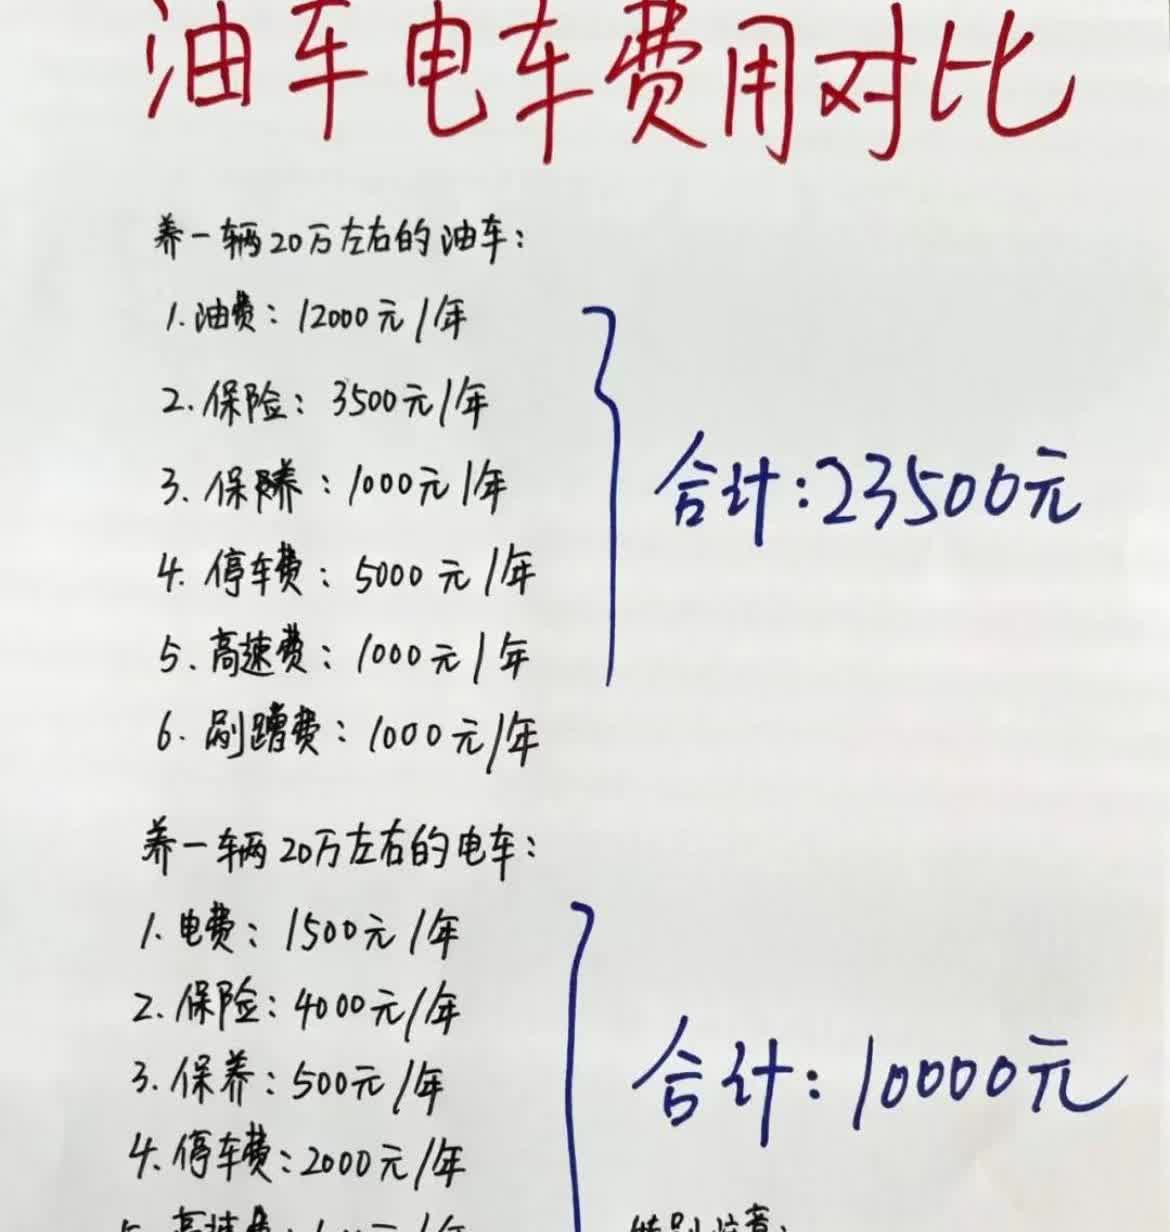 油车电车费用对比
养一辆20万左右的油车:
1.油费: 12000元/年
2.保险: 3500元/年
3.保养: 1000元/年
4.停车费: 5000元/年
5.高速费: 1000元/年
6.剐蹭费: 1000元/年
合计:23500元
养一辆20万左右的电车:
1.电费: 1500元/年
2.保险: 4000元/年
3.保养: 500元/年
4.停车费: 2000元/年
合计: 10000元
5.高速费:
特别注意: